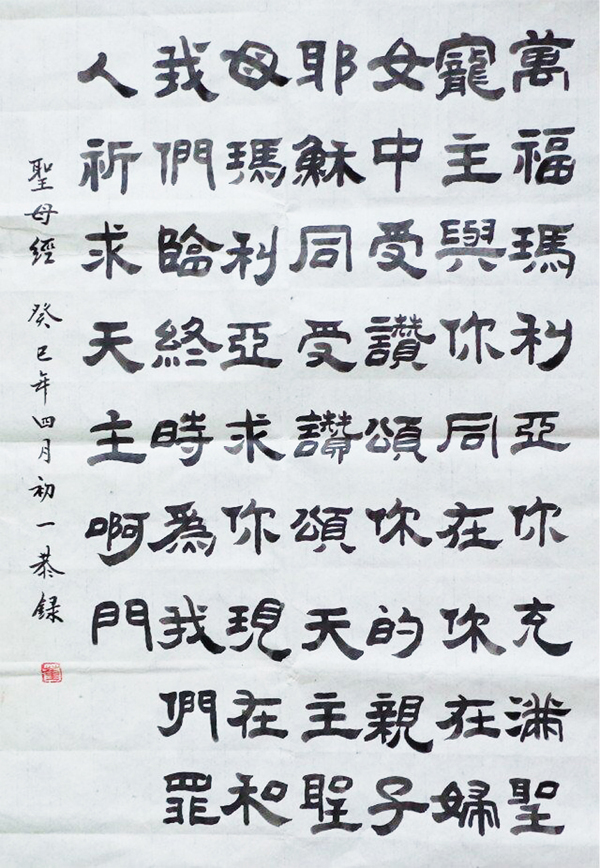 萬福瑪利亞你充滿聖
寵主與你同在你在婦
女中受讚頌你的親子
耶穌同受讚頌天主聖
母瑪利亞求你現在和
我們臨終時爲我們罪
人祈求天主啊門
聖母經 癸巳年四月初一恭録